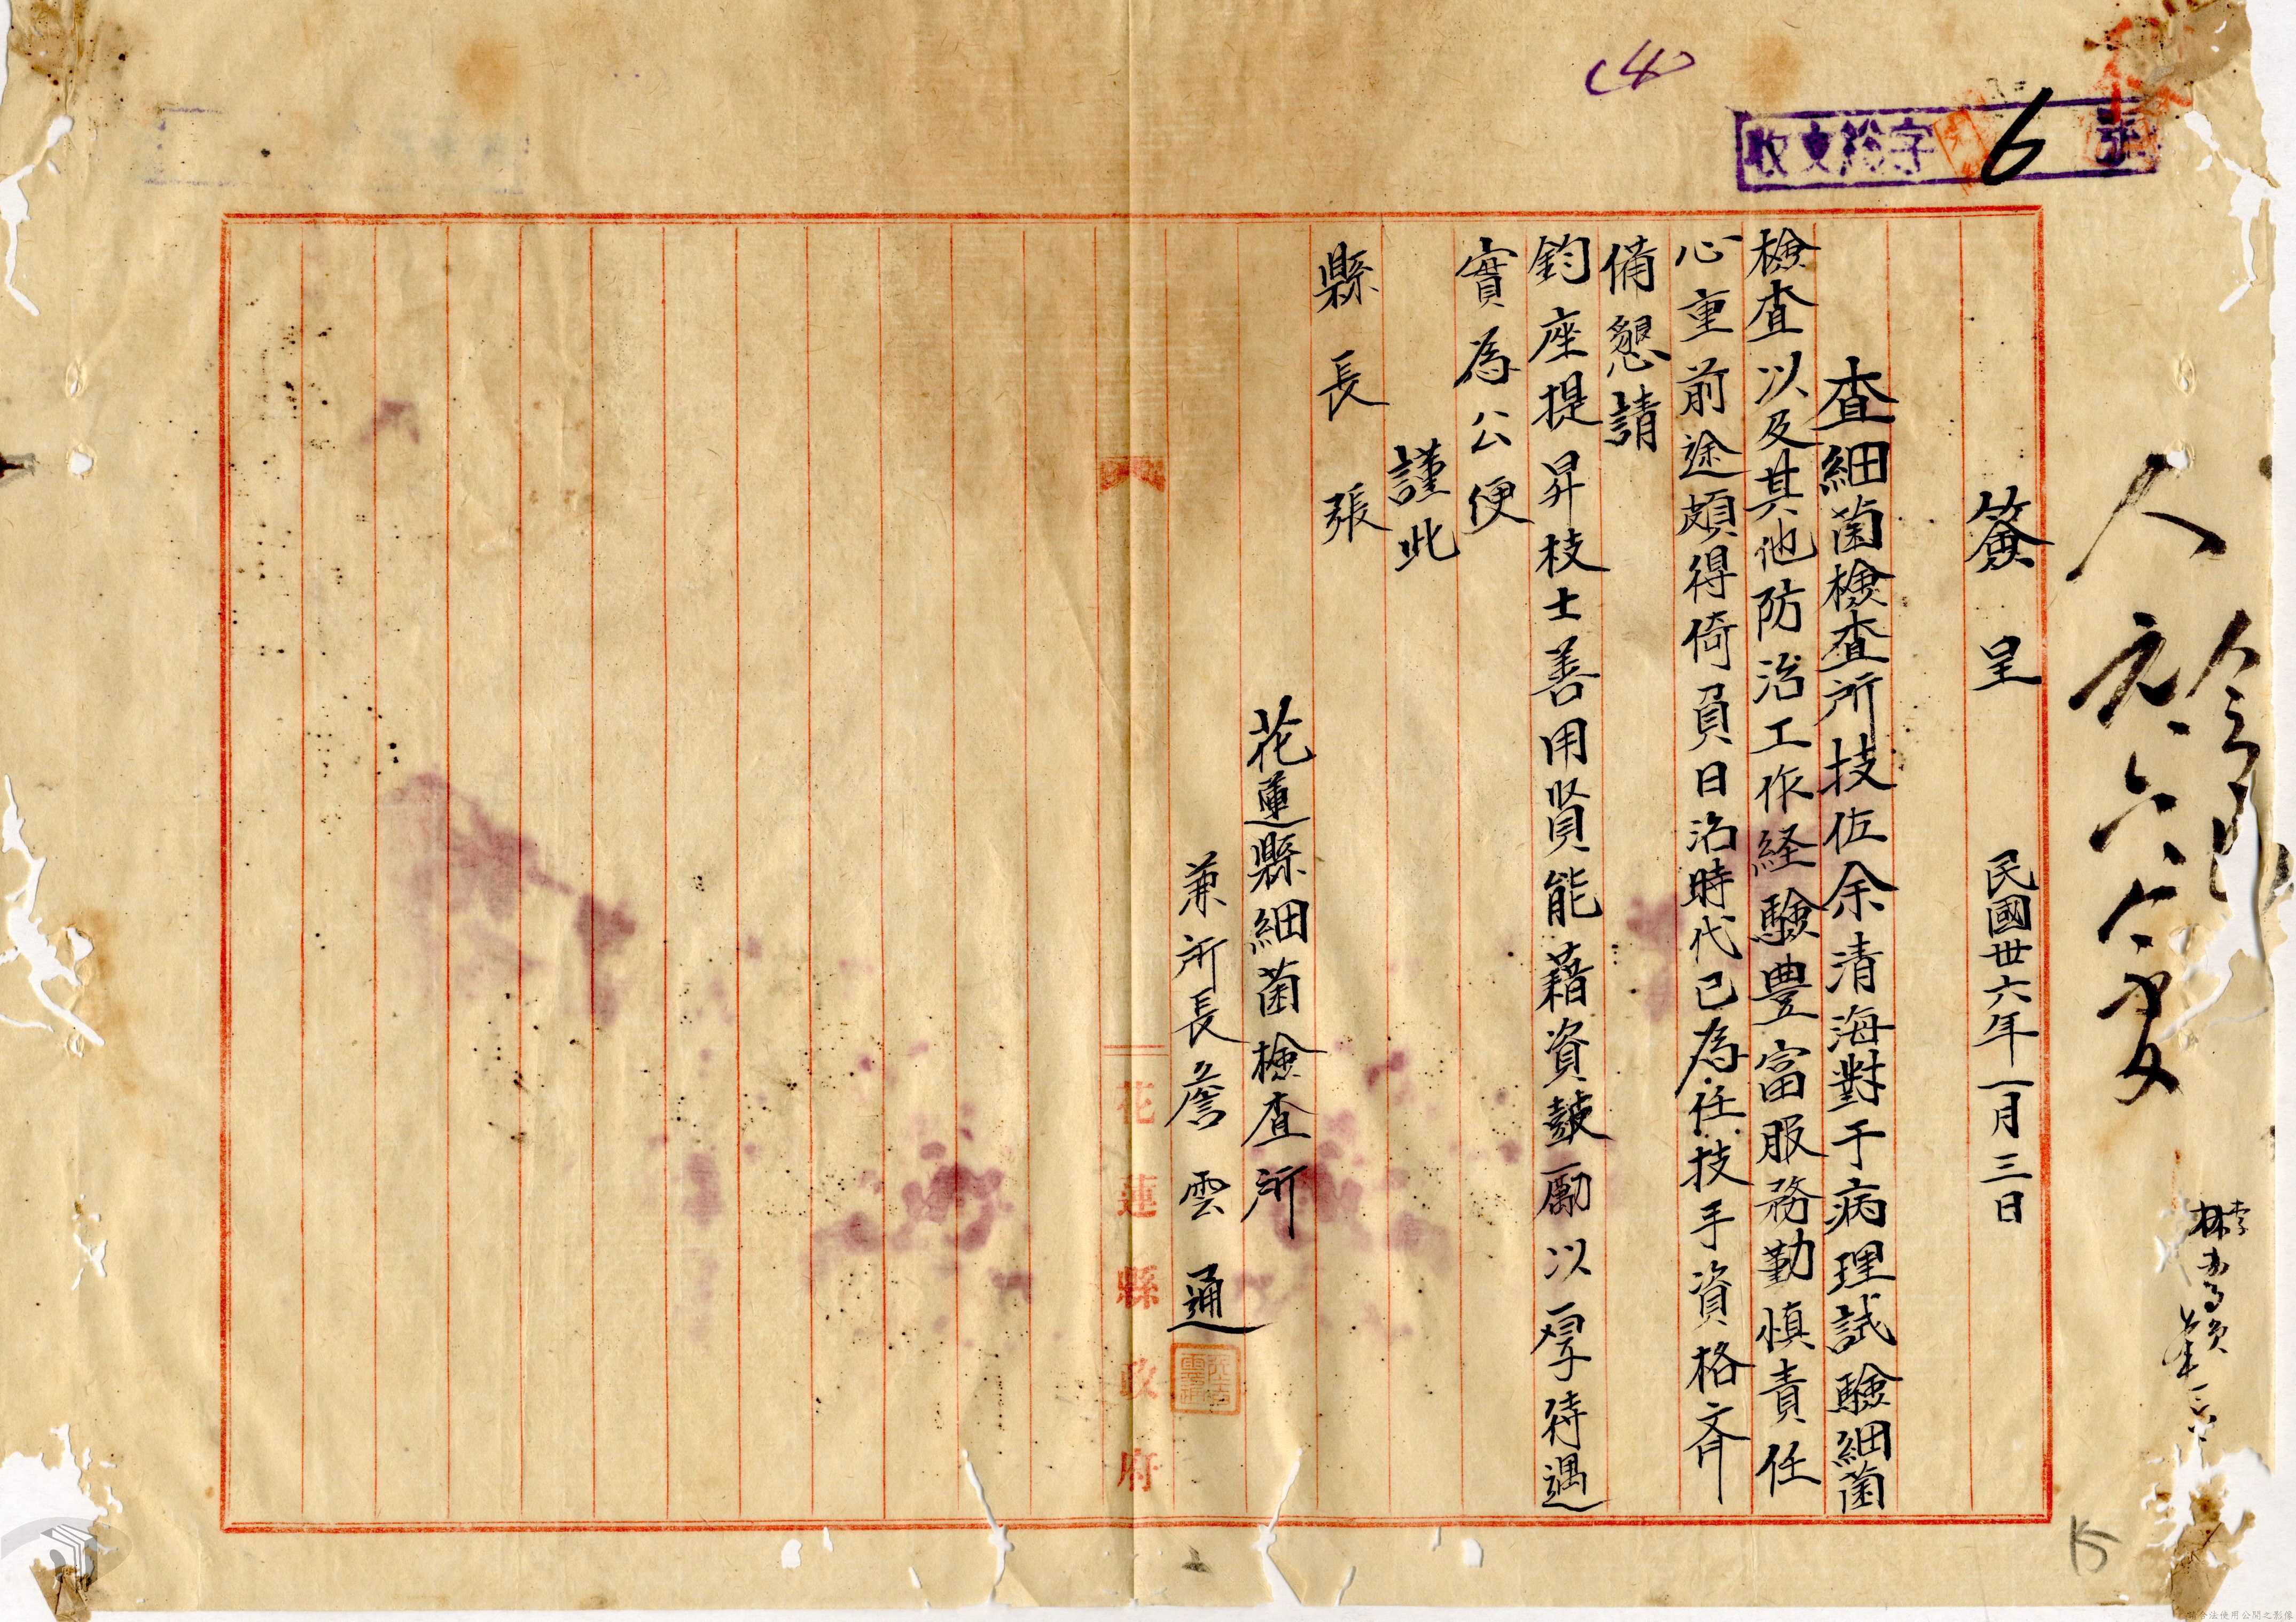 (4)
收文 字 6 號
簽呈 民國卅六年一月三日
查細菌檢查所技佐余清海對于病理試驗細菌
檢查以及其他防治工作経驗豊富服務勤慎責任
心重前途頗得倚負日治時代已為任技手資格齐
備懇請
鈞座提昇枝士善用賢能藉資鼓勵以厚待遇
實為公便
謹此
縣長 張
花蓮縣細菌檢查所
兼所長詹雲通
花蓮縣政府
15